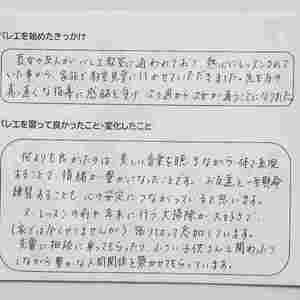 バレエを始めたきっかけ
長女の友人がバレエ教室に通われており、熱心にレッスンされて
いた事から、家族で教室見学に行かせていただきました。先生方の
指導に感銘を受け
バレエを習って良かったこと・変化したこと
何よりも良かったのは、美しい音楽を聴きながら体で表現
することで、情緒が豊かになったことです。お友達と一生懸命
練習することも心の安定につながっていると思います。
又、レッスンの前や年末に行う大掃除が大好きで、
(家では全くやりませんが) 張り切って参加しています。
先輩に相談に乗ってもらったり、小さい子供さんと関わったり
しながら豊かな人間関係を築かせてもらっています。